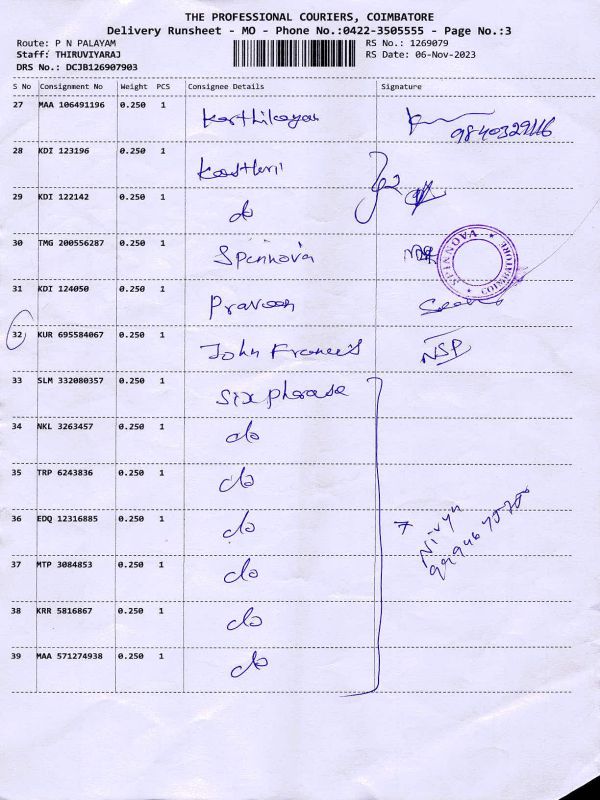 THE PROFESSIONAL COURIERS, COIMBATORE
Delivery Runsheet - MO - Phone No.:0422-3505555 - Page No.:3
Route: P N PALAYAM RS No.: 1269079
Staff: THIRUVIYARAJ RS Date: 06-Nov-2023
DRS No.: DCJB126907903
S No Consignment No Weight PCS Consignee Details Signature
27 MAA 106491196 0.250 1 Karthikayan
28 KDI 123196 0.250 1
29 KDI 122142 0.250 1 do
30 TMG 200556287 0.250 1 Spinnova
SPINNOVA COIMBATORE
31 KDI 124050 0.250 1 Praveen
32 KUR 695584067 0.250 1 John Francis NSP
33 SLM 332080357 0.250 1 Six phrase
34 NKL 3263457 0.250 1 do
35 TRP 6243836 0.250 1 do
36 EDQ 12316885 0.250 1 do
Nivya
37 MTP 3084853 0.250 1 do
38 KRR 5816867 0.250 1 do
39 MAA 571274938 0.250 1 do